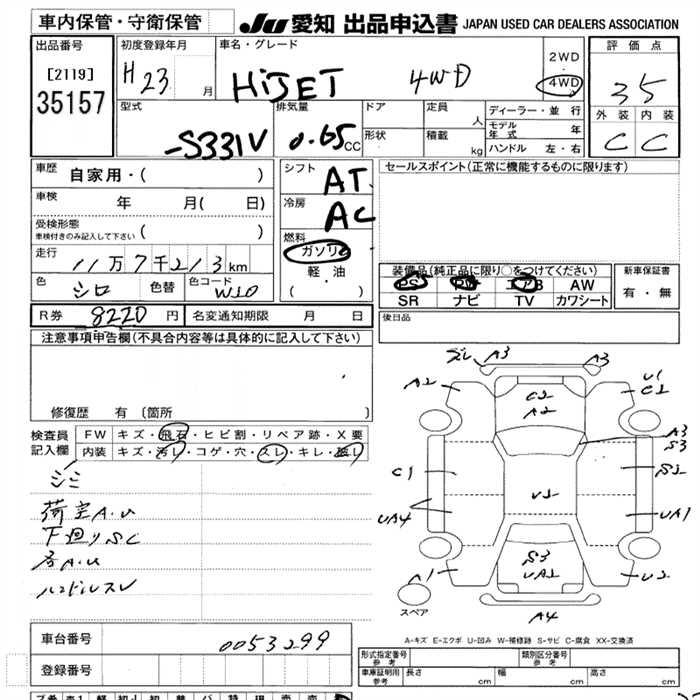 車内保管・守衛保管
JU 愛知 出品申込書 JAPAN USED CAR DEALERS ASSOCIATION
出品番号
[2119]
35157
初度登録年月
H23 月
車名・グレード
HIJET 4WD
2WD
・
4WD
評価点
35
外装 内装
C C
型式
-S331V
排気量
0.65 CC
ドア
形状
定員
人
積載
kg
ディーラー・並行
モデル年式 年
ハンドル 左・右
車歴
自家用・( )
車検
年 月( 日)
受検形態
車検付きのみ記入して下さい ( )
走行
11万7千213km
色
シロ
色替
色コード
W10
シフト
AT
冷房
AC
燃料
ガソリン
・
軽・油
( )
セールスポイント(正常に機能するものに限ります)
装備品(純正品に限り〇をつけてください)
PS PW エアB AW
SR ナビ TV カワシート
新車保証書
有・無
R券 8220 円
名変通知期限 月 日
後日品
注意事項申告欄(不具合内容等は具体的に記入して下さい)
修復歴 有 (箇所 )
検査員
記入欄
FW キズ・飛石・ヒビ割・リペア跡・X要
内装 キズ・汚レ・コゲ・穴・スレ・キレ・破レ
シミ
荷室A.U
下廻りSC
ハンドルスレ
ズレ A3
A3
A2
C2
A2
U1
C1
A3
S3
C1
UA4
UA1
S3
A1
U2
A4
スペア
A-キズ E-エクボ U-凹み W-補修跡 S-サビ C-腐食 XX-交換済
車台番号
0053299
登録番号
形式指定番号
参考
類別区分番号
参考
車庫証明用
参考
長さ cm
幅 cm
高さ cm